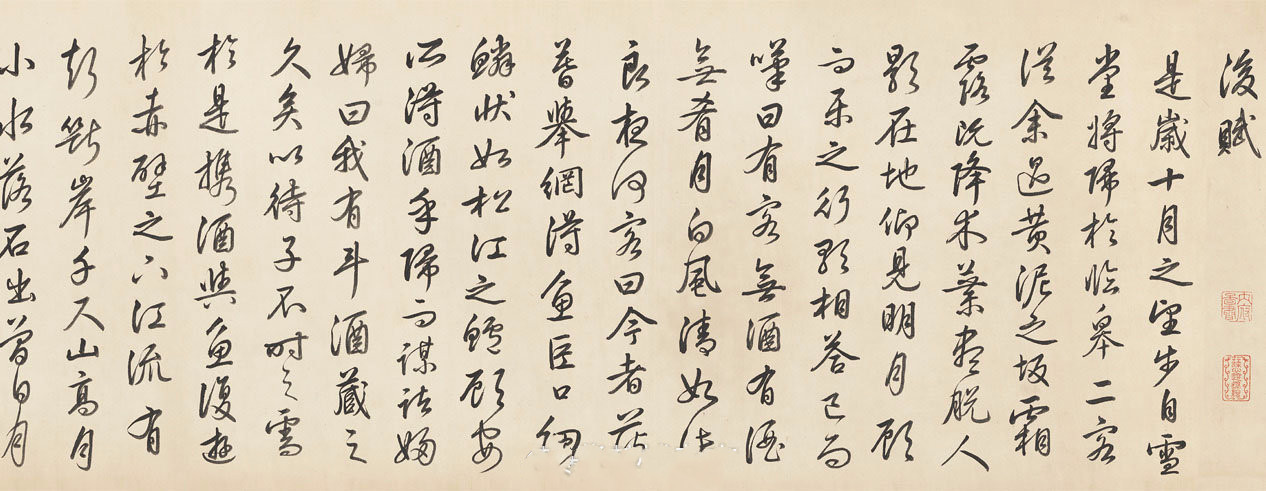 後賦
是歲十月之望步自雪
堂將歸於臨皋二客
從余過黃泥之坂霜
露既降木葉盡脫人
影在地仰見明月顧
而樂之行歌相答已而
嘆曰有客無酒有酒
無肴月白風清如此
良夜何客曰今者薄
暮舉網得魚巨口細
鱗狀如松江之鱸顧安
所得酒乎歸而謀諸婦
婦曰我有斗酒藏之
久矣以待子不時之需
於是攜酒與魚復遊
於赤壁之下江流有
聲斷岸千尺山高月
小水落石出曾日月